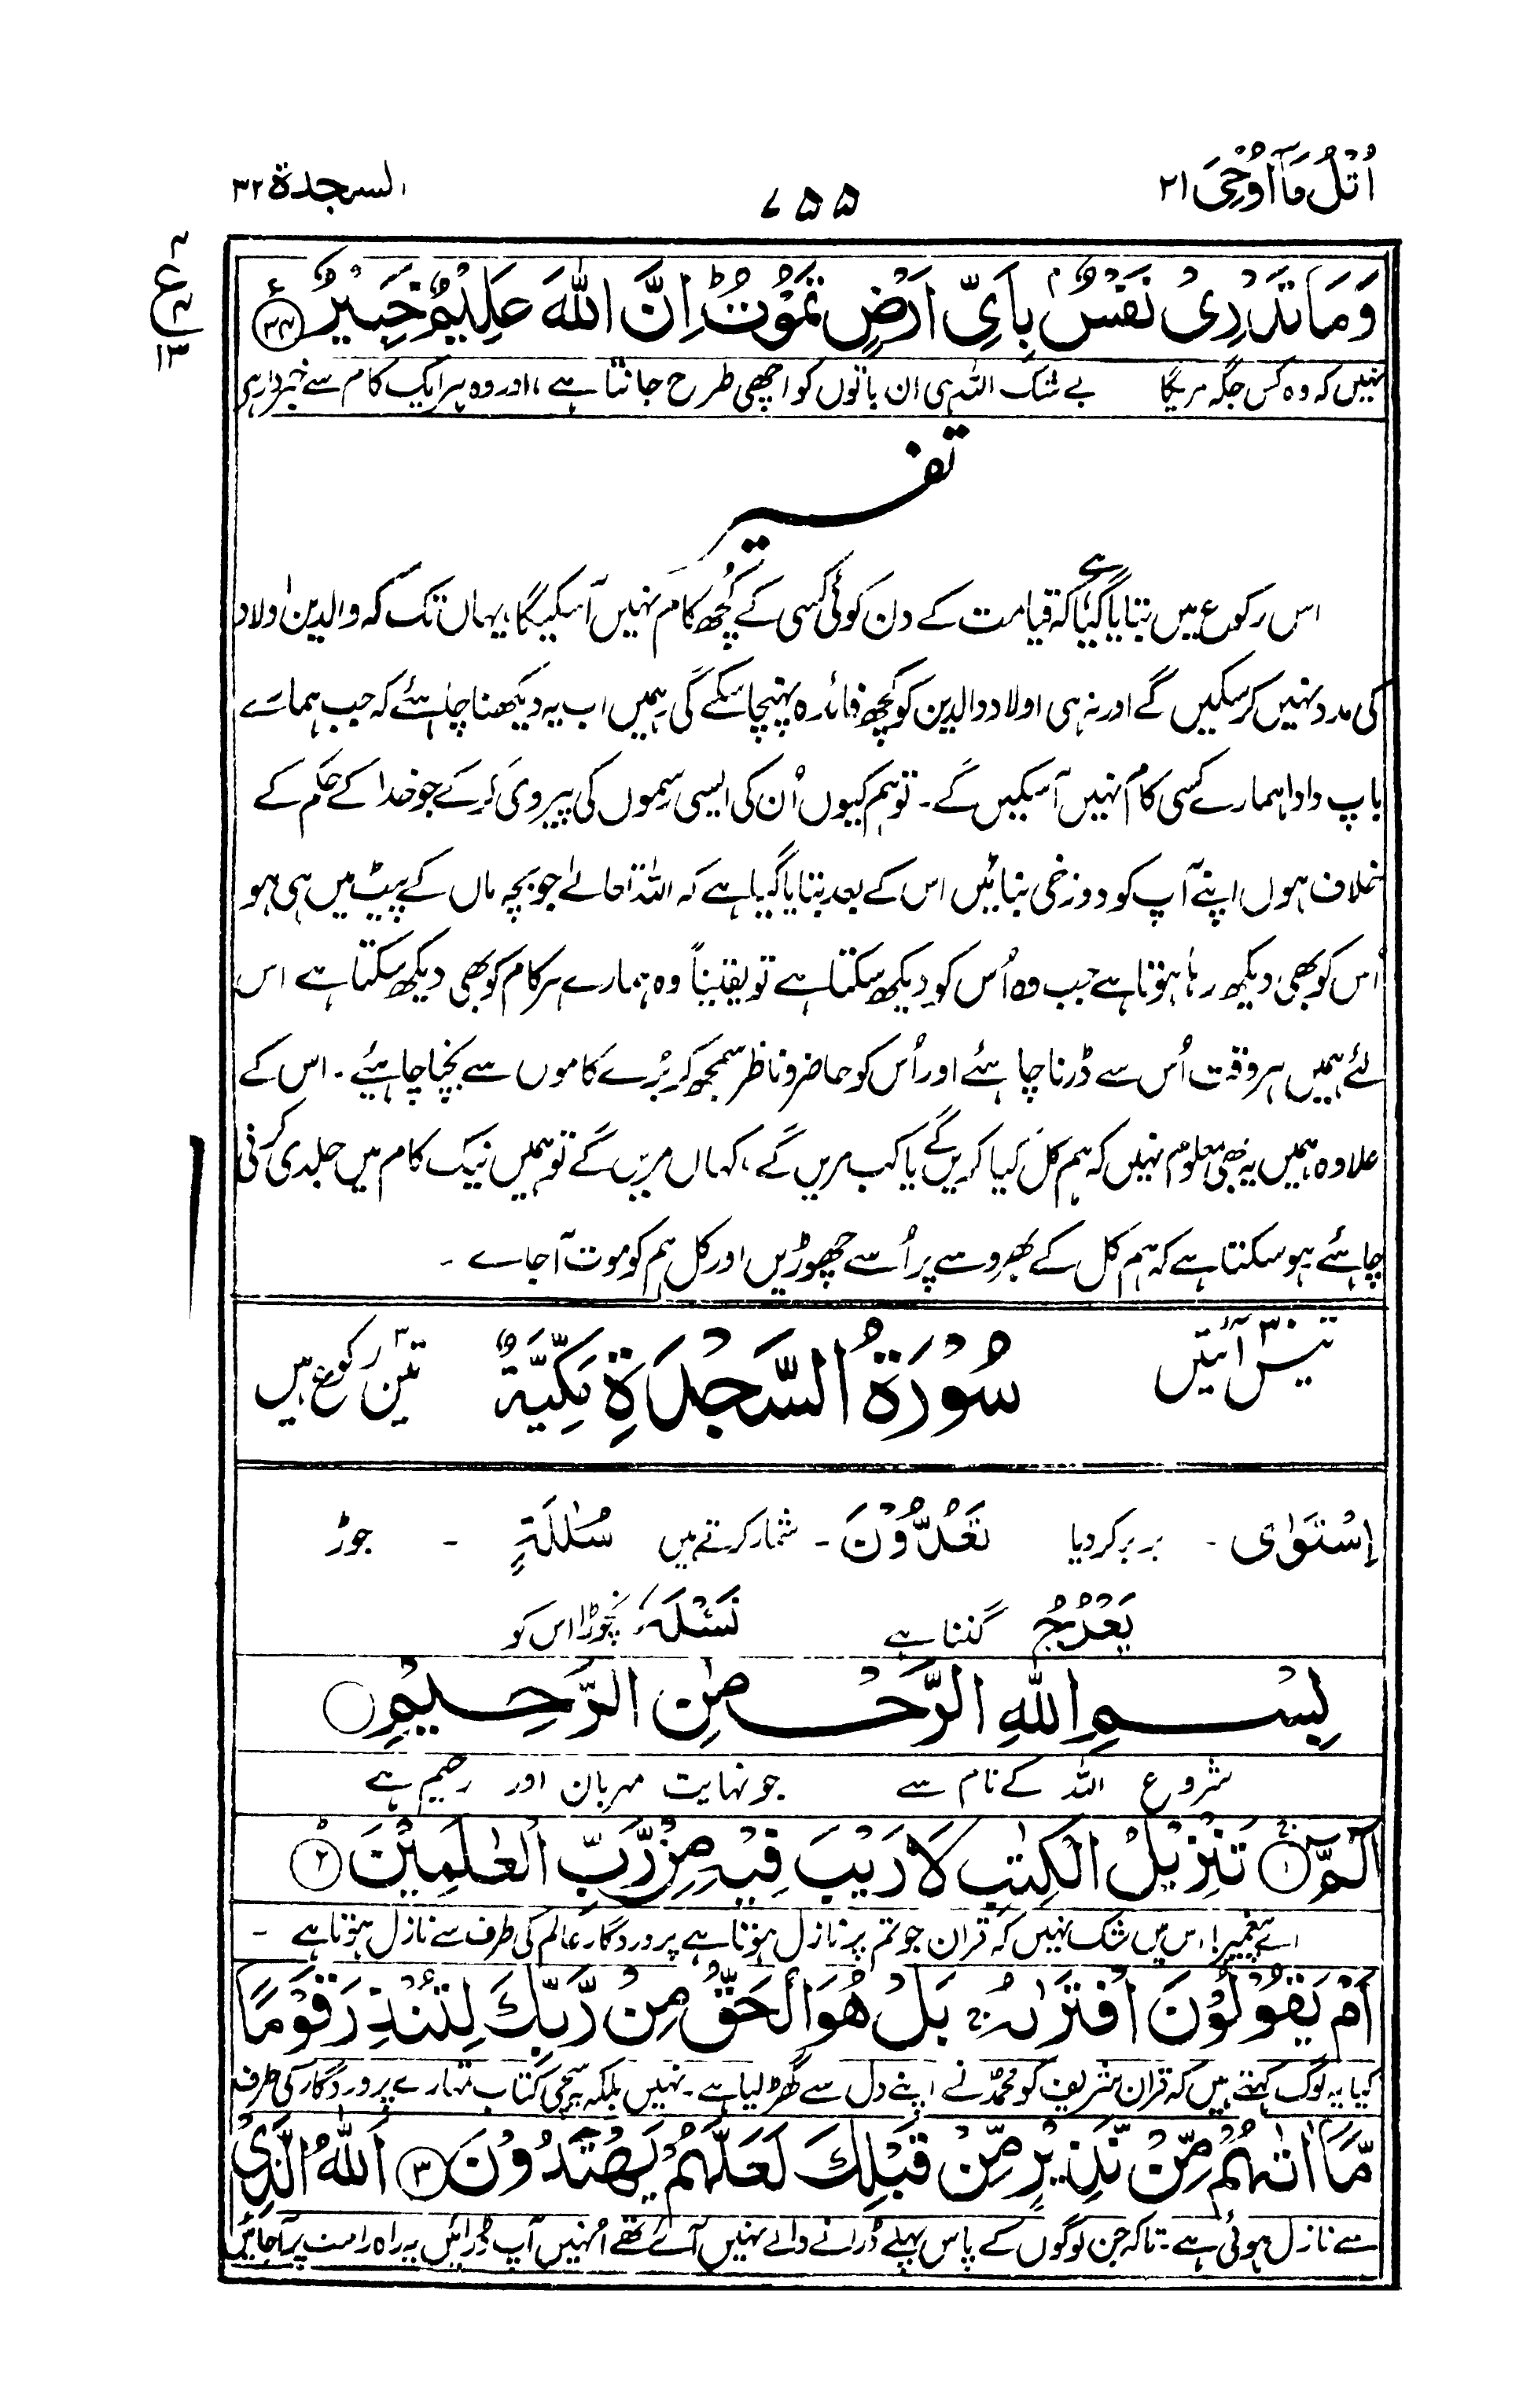 اُتْلُ مَآ اُوْحِیَ ۲۱
۷۵۵
السجدۃ ۳۲
وَمَا تَدْرِیْ نَفْسٌۢ بِاَیِّ اَرْضٍ تَمُوْتُ ؕ اِنَّ اللّٰهَ عَلِیْمٌ خَبِیْرٌ ﴿۳۴﴾
ع ۴ ۱۳
نہیں کہ وہ کس جگہ مریگا بے شک اللہ ہی ان باتوں کو اچھی طرح جانتا ہے، اور وہ ہر ایک کام سے خبردار ہے
تفسیر
اس رکوع میں بتایا گیا ہے کہ قیامت کے دن کوئی کسی کے کچھ کام نہیں آسکیگا، یہاں تک کہ والدین اولاد
کی مدد نہیں کرسکیں گے اور نہ ہی اولاد والدین کو کچھ فائدہ پہنچا سکے گی ہمیں اب یہ دیکھنا چاہئے کہ جب ہمارے
باپ دادا ہمارے کسی کام نہیں آسکیں گے۔ تو ہم کیوں اُن کی ایسی رسموں کی پیروی کرکے جو خدا کے حکم کے
خلاف ہوں اپنے آپ کو دوزخی بنائیں اس کے بعد بتایا گیا ہے کہ اللہ تعالےٰ جو بچہ ماں کے پیٹ میں ہی ہو
اُس کو بھی دیکھ رہا ہوتا ہے جب وہ اُس کو دیکھ سکتا ہے تو یقیناً وہ ہمارے ہر کام کو بھی دیکھ سکتا ہے اس
لئے ہمیں ہر وقت اُس سے ڈرنا چاہئے اور اُس کو حاضر و ناظر سمجھ کر بُرے کاموں سے بچنا چاہئیے۔ اس کے
علاوہ ہمیں یہ بھی معلوم نہیں کہ ہم کل کیا کریں گے یا کب مریں گے، کہاں مریں گے تو ہمیں نیک کام میں جلدی کرنی
چاہئے ہوسکتا ہے کہ ہم کل کے بھروسے پر اُسے چھوڑیں اور کل ہم کو موت آجاے ۔
تیس ۳۰ آئتیں
سُوْرَةُ السَّجْدَةِ مَكِّیَّةٌ
تین ۳ رکوع ہیں
اِسْتَوٰی - بربر کردیا تَعُدُّوْنَ - شمار کرتے ہیں سُلٰلَةٍ - جوڑ
یَعْرُجُ گننا ہے نَسْلَهٗ نچوڑا اس کو
بِسْمِ اللّٰهِ الرَّحْمٰنِ الرَّحِیْمِ
شروع اللہ کے نام سے جو نہایت مہربان اور رحیم ہے
الٓمّٓ ﴿۱﴾ تَنْزِیْلُ الْكِتٰبِ لَا رَیْبَ فِیْهِ مِنْ رَّبِّ الْعٰلَمِیْنَ ﴿۲﴾
اے پیغمبر! اس میں شک نہیں کہ قران جو تم پر نازل ہوتا ہے پروردگار عالم کی طرف سے نازل ہوتا ہے -
اَمْ یَقُوْلُوْنَ افْتَرٰىهُ ۚ بَلْ هُوَ الْحَقُّ مِنْ رَّبِّكَ لِتُنْذِرَ قَوْمًا
کیا یہ لوگ کہتے ہیں کہ قران شریف کو محمدؐ نے اپنے دل سے گھڑ لیا ہے۔ نہیں بلکہ یہ سچی کتاب تمہارے پروردگار کی طرف
مَّاۤ اَتٰىهُمْ مِّنْ نَّذِیْرٍ مِّنْ قَبْلِكَ لَعَلَّهُمْ یَهْتَدُوْنَ ﴿۳﴾ اَللّٰهُ الَّذِیْ
سے نازل ہوئی ہے۔ تاکہ جن لوگوں کے پاس پہلے ڈرانے والے نہیں آئے تھے اُنہیں آپ ڈرائیں یہ راہ راست پر آجائیں